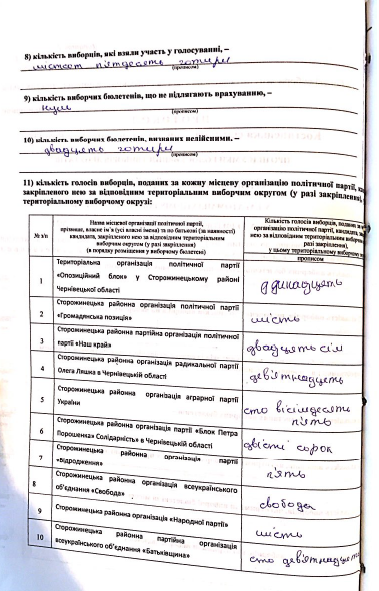 8) кількість виборців, які взяли участь у голосуванні, –
шістсот п'ятдесять чотири
(прописом)
9) кількість виборчих бюлетенів, що не підлягають врахуванню, –
нуль
(прописом)
10) кількість виборчих бюлетенів, визнаних недійсними, –
двадцять чотири
(прописом)
11) кількість голосів виборців, поданих за кожну місцеву організацію політичної партії,
закріпленого нею за відповідним територіальним виборчим округом (у разі закріплення),
територіальному виборчому окрузі:
№ з/п
Назва місцевої організації політичної партії,
прізвище, власне ім'я (усі власні імена) та по батькові (за наявності)
кандидата, закріпленого нею за відповідним територіальним
виборчим округом (у разі закріплення)
(в порядку розміщення у виборчому бюлетені)
Кількість голосів виборців, поданих за
організацію політичної партії, кандидата,
нею за відповідним територіальним
(у разі закріплення),
у цьому територіальному виборчому
прописом
1
Територіальна організація політичної партії
«Опозиційний блок» у Сторожинецькому районі
Чернівецької області
одинадцять
2
Сторожинецька районна організація політичної партії
«Громадянська позиція»
шість
3
Сторожинецька районна партійна організація політичної
партії «Наш край»
двадцять сім
4
Сторожинецька районна організація радикальної партії
Олега Ляшка в Чернівецькій області
дев'ятнадцять
5
Сторожинецька районна організація аграрної партії
України
сто вісімдесять
п'ять
6
Сторожинецька районна організація партії «Блок Петра
Порошенка» Солідарність» в Чернівецькій області
двісті сорок
7
Сторожинецька районна організація партії
«Відродження»
п'ять
8
Сторожинецька районна організація всеукраїнського
об'єднання «Свобода»
свобода
9
Сторожинецька районна організація «Народної партії»
шість
10
Сторожинецька районна партійна організація
всеукраїнського об'єднання «Батьківщина»
сто дев'ятнадцять